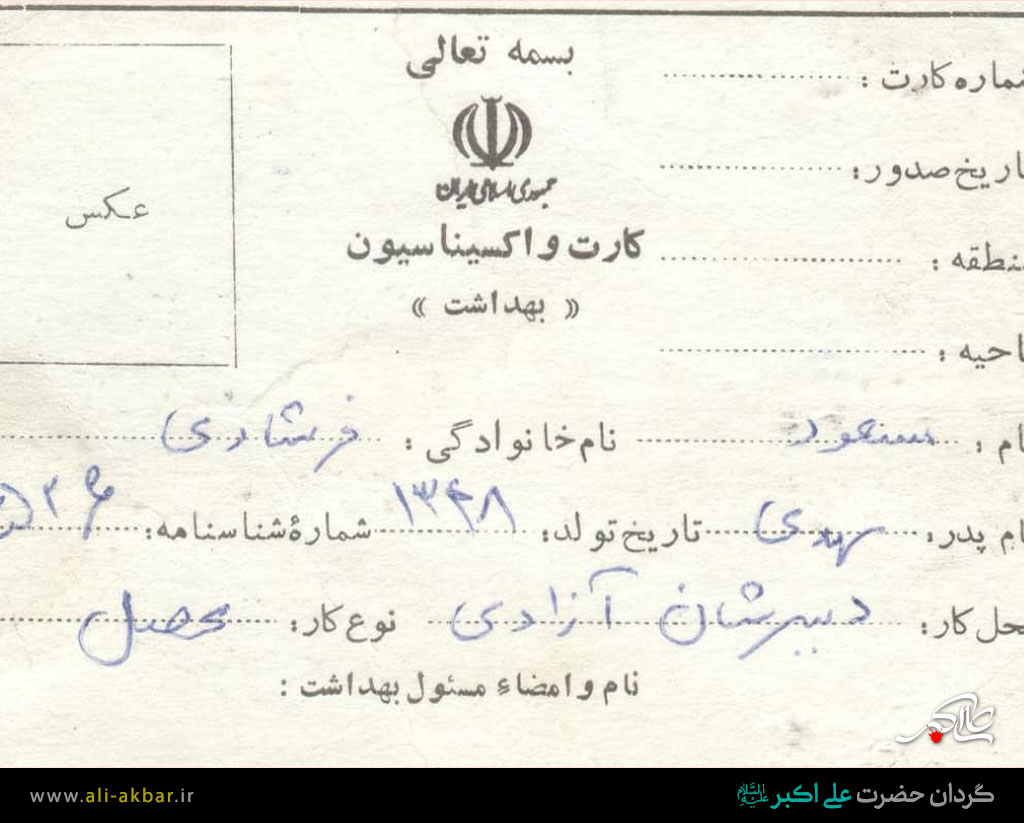 بسمه تعالی
جمهوری اسلامی ایران
کارت واکسیناسیون
« بهداشت »
عکس
شماره کارت :
تاریخ صدور:
منطقه :
ناحیه :
نام : مسعود نام خانوادگی : فرشادی
نام پدر: مهدی تاریخ تولد: ۱۳۴۸ شمارهٔ شناسنامه:
محل کار: دبیرستان آزادی نوع کار: محصل
نام و امضاء مسئول بهداشت :
علی اکبر
گردان حضرت علی اکبر علیه السلام
www.ali-akbar.ir